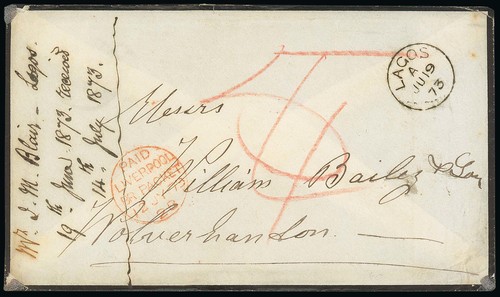 Mr J. M. Blair - Lagos.
19th June 1873. received
14th July 1873.
LAGOS
A
JU 19
73
Messrs
William Bailey & Son
Wolverhamton
PAID
LIVERPOOL
BR. PACKET